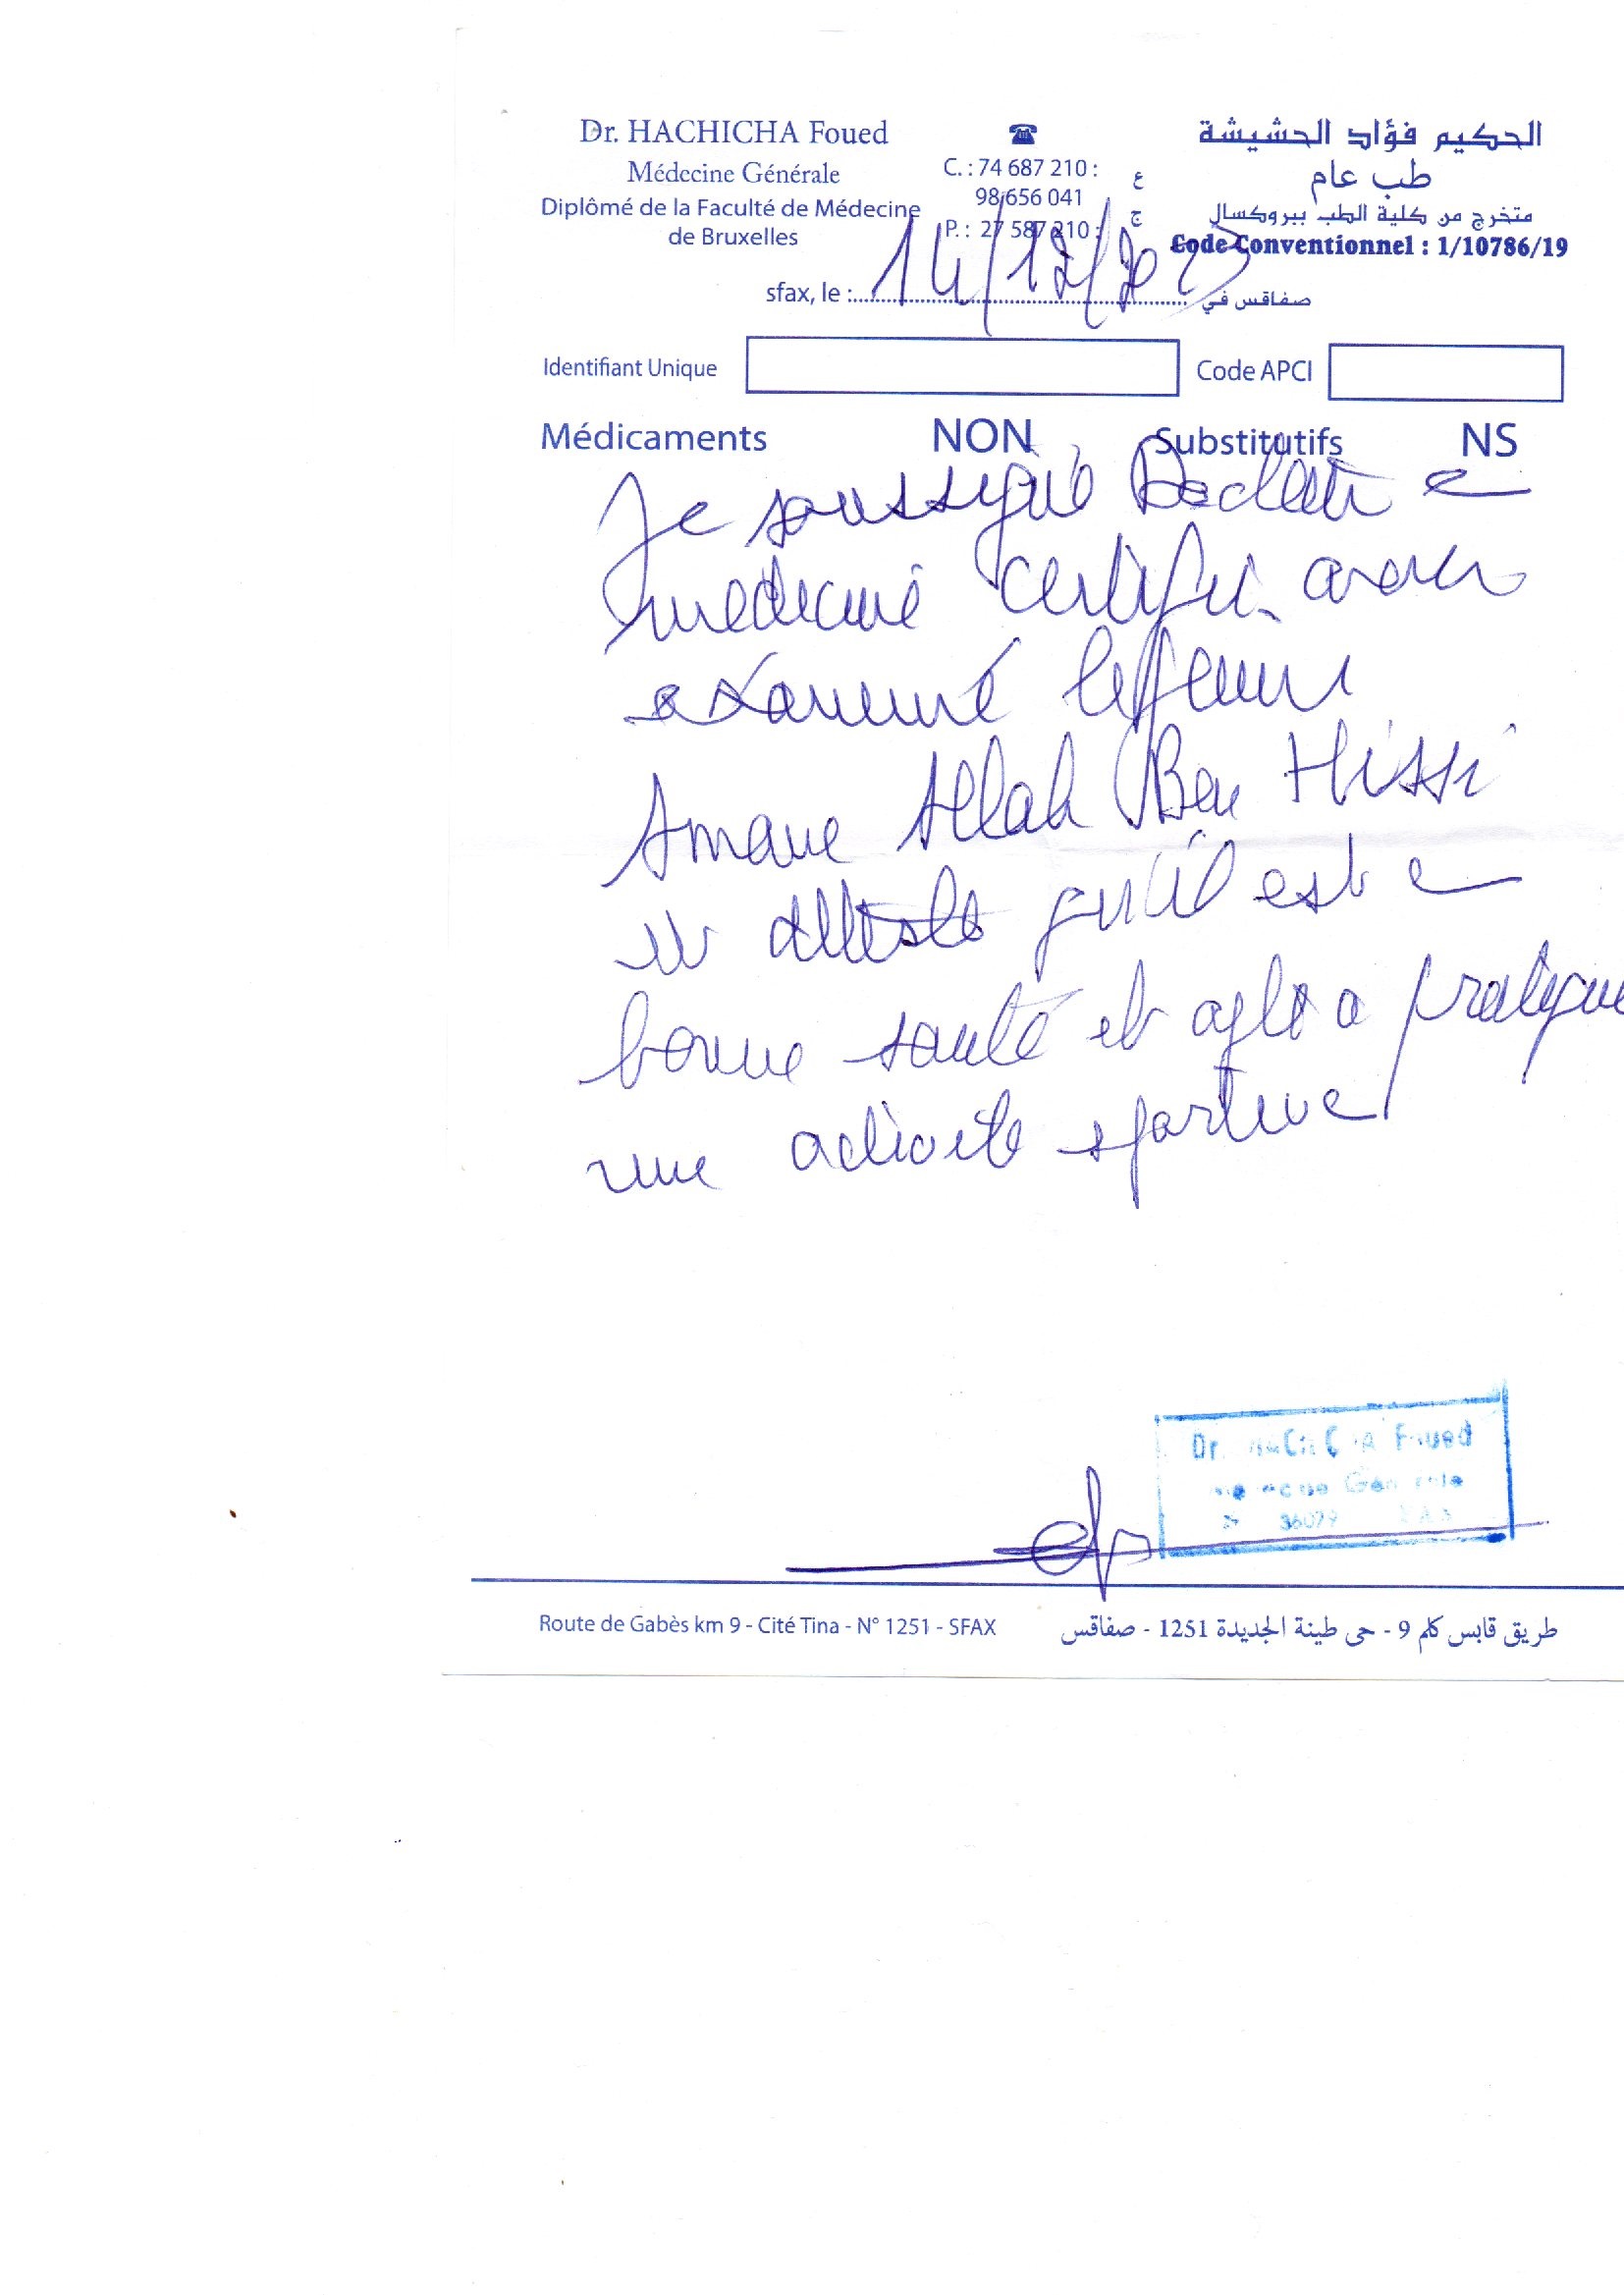 Dr. HACHICHA Foued
Médecine Générale
Diplômé de la Faculté de Médecine
de Bruxelles
C. : 74 687 210 : ع
98 656 041
P. : 27 587 210 : ج
الحكيم فؤاد الحشيشة
طب عام
متخرج من كلية الطب ببروكسال
Code Conventionnel : 1/10786/19
sfax, le : 14/12/2023 صفاقس في
Identifiant Unique Code APCI
Médicaments NON Substitutifs NS
Je soussigné Docteur e
medecine certifie avoir
examiné le jeune
Amane Allah Ben Hissi
et atteste qu'il est e
bonne santé et apte a pratique
une activité sportive
Dr. HACHICHA Foued
Générale
36079
Route de Gabès km 9 - Cité Tina - N° 1251 - SFAX
طريق قابس كلم 9 - حى طينة الجديدة 1251 - صفاقس